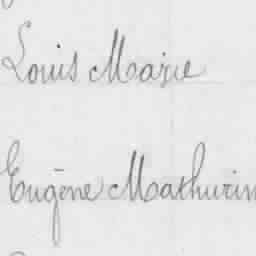 Louis Marie
Eugène Mathurin